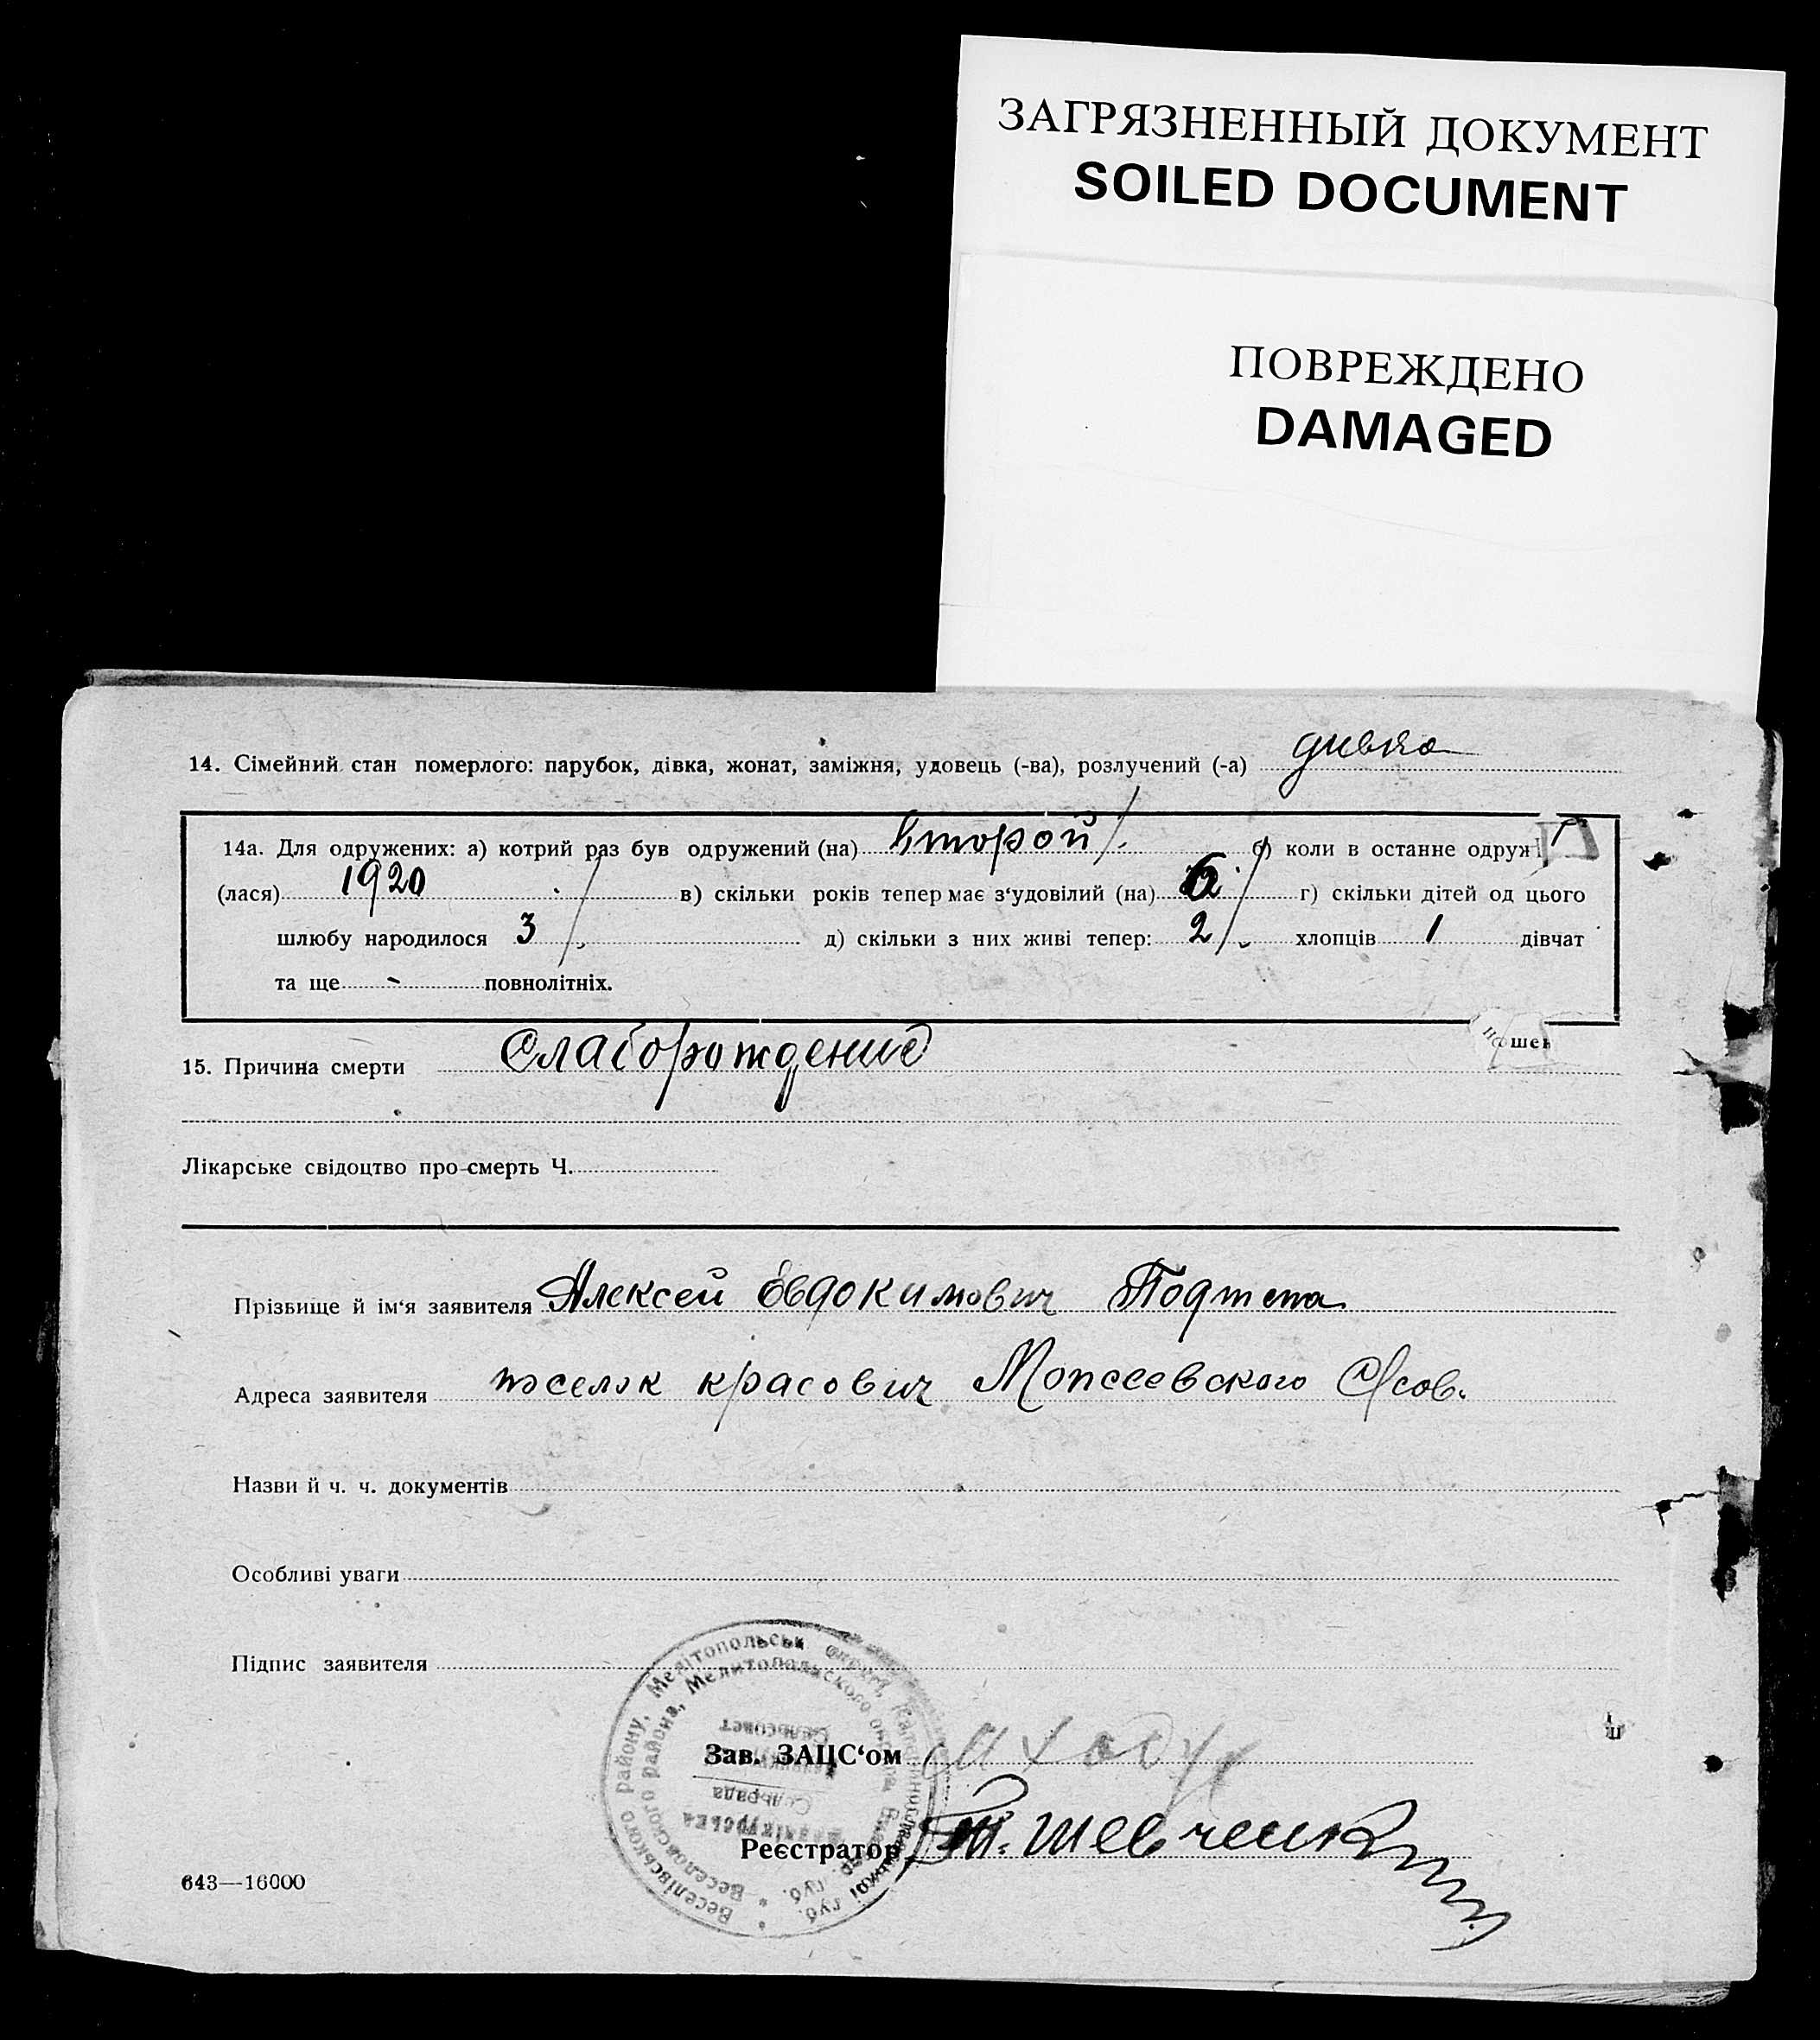 ЗАГРЯЗНЕННЫЙ ДОКУМЕНТ
SOILED DOCUMENT
ПОВРЕЖДЕНО
DAMAGED
14. Сімейний стан померлого: парубок, дівка, жонат, заміжня, удовець (-ва), розлучений (-а) дивка
14а. Для одружених: а) котрий раз був одружений (на) второй б) коли в останне одруж
(лася) 1920 в) скільки років тепер має з'удовілий (на) г) скільки дітей од цього
шлюбу народилося 3 д) скільки з них живі тепер: 2 хлопців 1 дівчат
та ще - повнолітніх.
15. Причина смерти Слаборождение
Лікарське свідоцтво про смерть Ч.
Прізвище й ім'я заявителя Алексей Евдокимович
Адреса заявителя поселок красович Моисеевского С/сов.
Назви й ч. ч. документів
Особливі уваги
Підпис заявителя
Веселівського району, Мелітопольськ округи, Катеринославської губ.
Веселовского района, Мелитопольского округа
Сельсовет
Сельрада
Зав. ЗАЦС'ом
Реєстратор Шевченко
643—16000